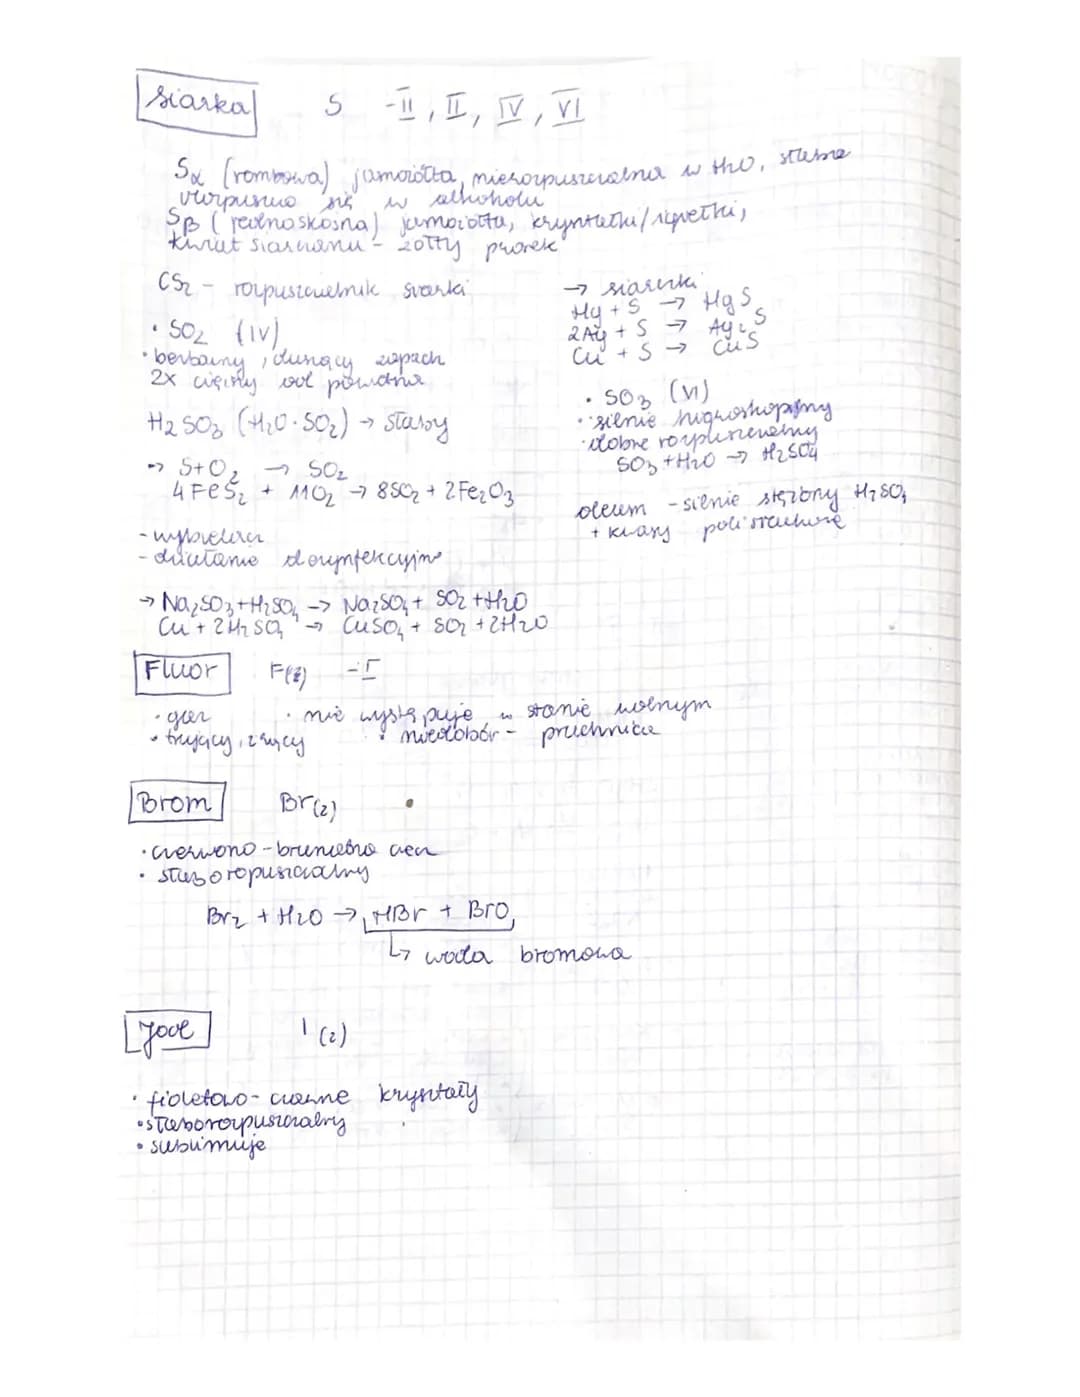 Siarka S -II, II, IV, VI
Sα (rombowa) jasnożółta, nierozpuszczalna w H2O, słabo
rozpuszcza się w alkoholu
Sβ (jednoskośna) jasnożółta, kryształki/igiełki,
kwiat siarczany - żółty proszek
CS2 - rozpuszczalnik siarki
• SO2 (IV)
• bezbarwny, duszący zapach
2x cięższy od powietrza
H2SO3 (H2O·SO2) → słaby
→ S+O2 → SO2
4FeS2 + 11O2 → 8SO2 + 2Fe2O3
- wybielacz
- działanie dezynfekcyjne
→ Na2SO3+H2SO4 → Na2SO4 + SO2 + H2O
Cu + 2H2SO4 → CuSO4 + SO2 + 2H2O
→ siarczki
Hg + S → HgS
2Ag + S → Ag2S
Cu + S → CuS
• SO3 (VI)
• silnie higroskopijny
• dobrze rozpuszczalny
SO3 + H2O → H2SO4
oleum - silnie stężony H2SO4
+ kwasy polisiarkowe
Fluor F(2) -I
• gaz • nie występuje w stanie wolnym
• trujący, żrący • niedobór - próchnica
Brom Br(2)
• czerwono-brunatna ciecz
• słabo rozpuszczalny
Br2 + H2O → HBr + BrO
↳ woda bromowa
Jod I(2)
• fioletowo-czarne kryształy
• słabo rozpuszczalny
• sublimuje